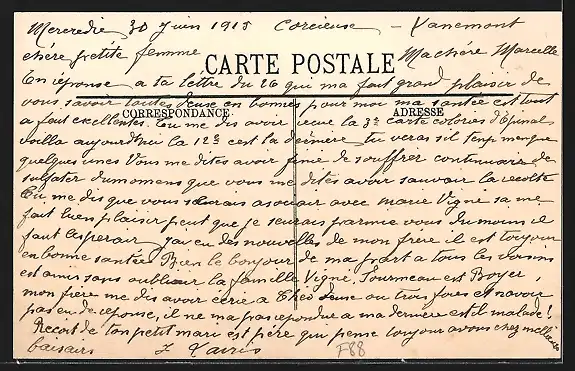 Mercredie 30 Juin 1915 Corcieuse – Vanemont
chère petite femme Ma chère Marcelle
CARTE POSTALE
En réponse a ta lettre du 26 qui ma fait grand plaisir de
vous savoir toutes deuse en bonnes pour moi ma santée est tout
CORRESPONDANCE ADRESSE
a fait excellentes. Tu me dis avoir recue la 3e carte colores d'Epinal
voilla aujourdhui la 12e cest la dernière tu veras sil tenp manque
quelques unes Vous me dites avoir finie de souffrer continuaire de
sulfater du momens que vous me dites avoir sauvoir la recolte
Tu me dis que vous associer avec marie Vigne sa me
fait bien plaisir peut que je seurais parmie vous du moins il
faut lesperair jai eu des nouvelles de mon frère il est toujour
en bonne santée Bien le bonjour de ma part a tous les voisins
est amis sans oublier la famille Vigne, Tourneau est Boyer,
mon frère me dis avoir ecrie a Théo deuse ou trois foies et navoir
pas eu de reponse, il ne ma pas repondue a ma dernière est il malade!
Recoit de ton petit marie est père qui pense toujour a vous chez mille
baisairs J
F88